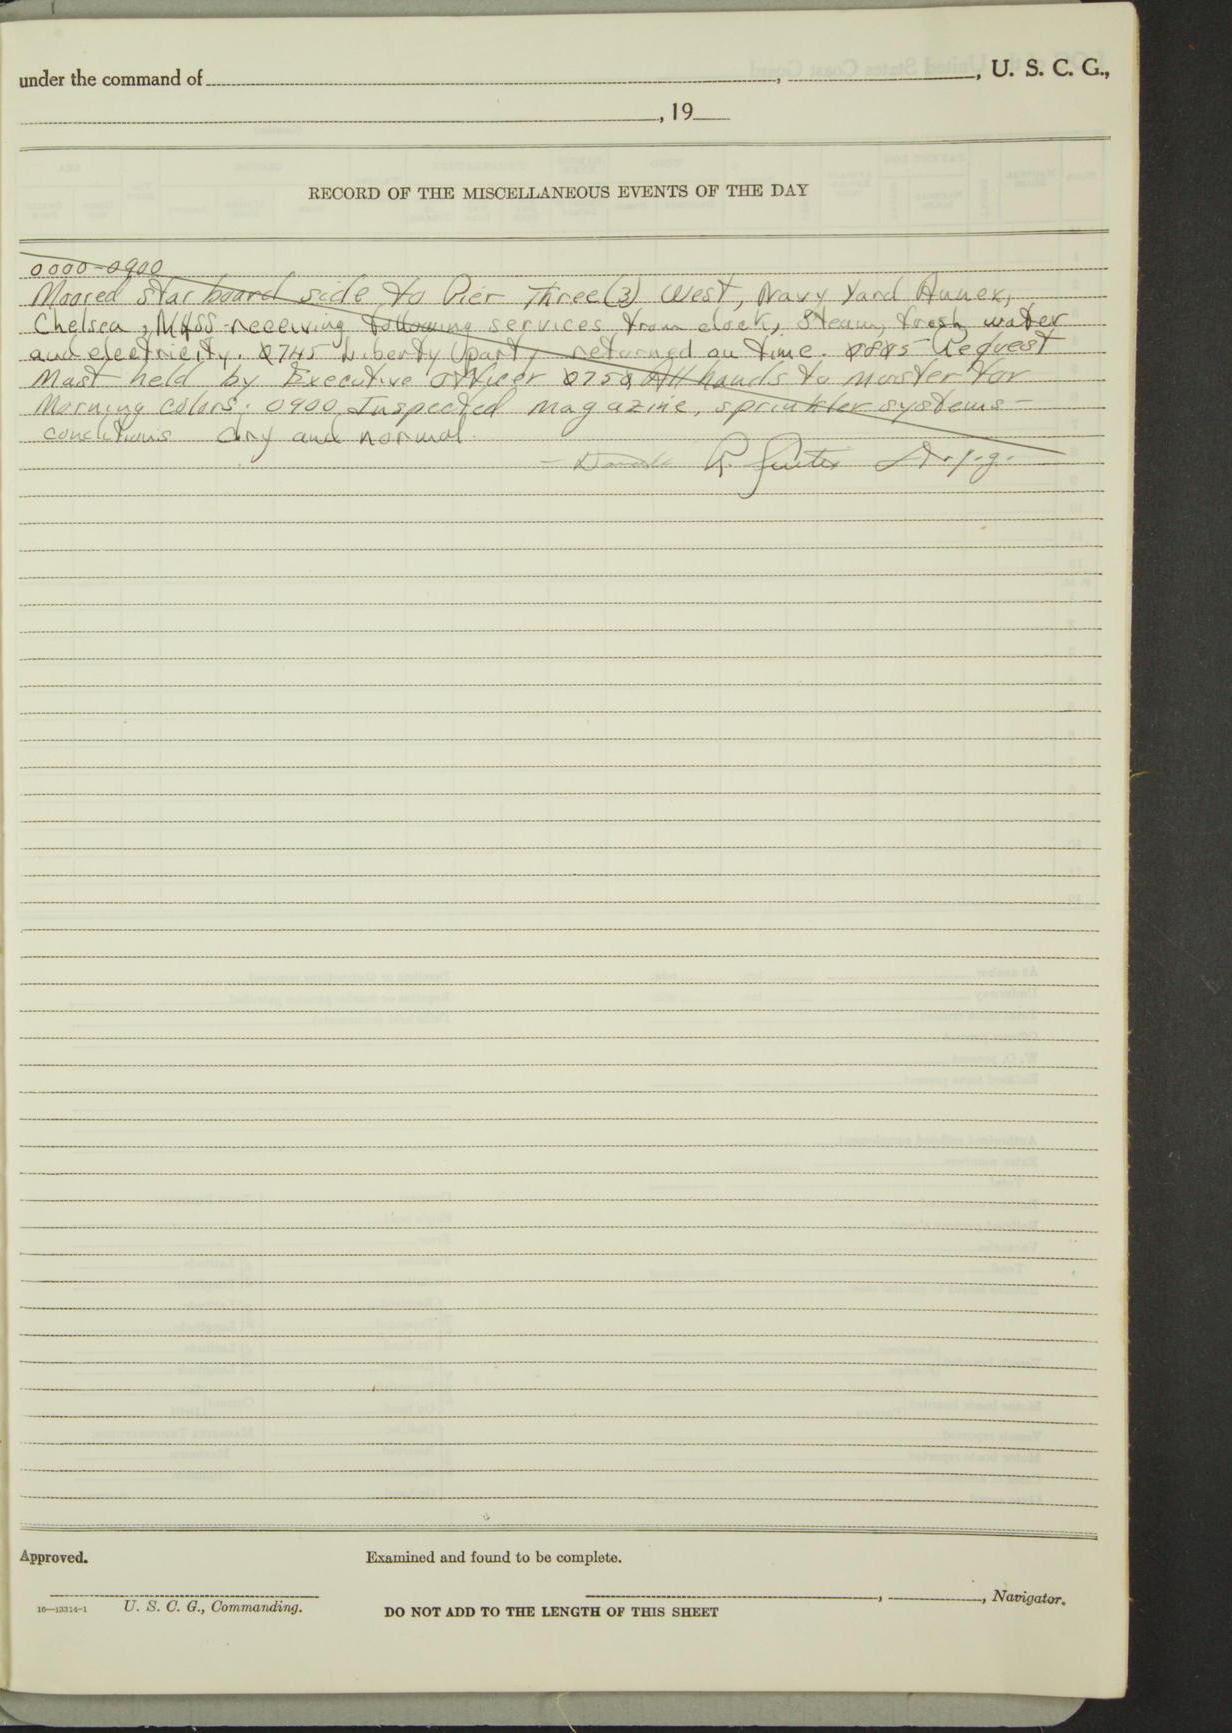 under the command of , , U. S. C. G.,
, 19
RECORD OF THE MISCELLANEOUS EVENTS OF THE DAY
0000-0900
Moored starboard side to Pier Three (3) West, Navy Yard Annex,
Chelsea, MASS receiving following services from dock, steam, fresh water
and electricity. 0745 Liberty party returned on time. 0805 Request
Mast held by Executive Officer 0750 All hands to muster for
Morning colors. 0900 Inspected magazine, sprinkler systems -
conditions dry and normal
R.
Approved. Examined and found to be complete.
U. S. C. G., Commanding. , , Navigator.
16—13314-1 DO NOT ADD TO THE LENGTH OF THIS SHEET